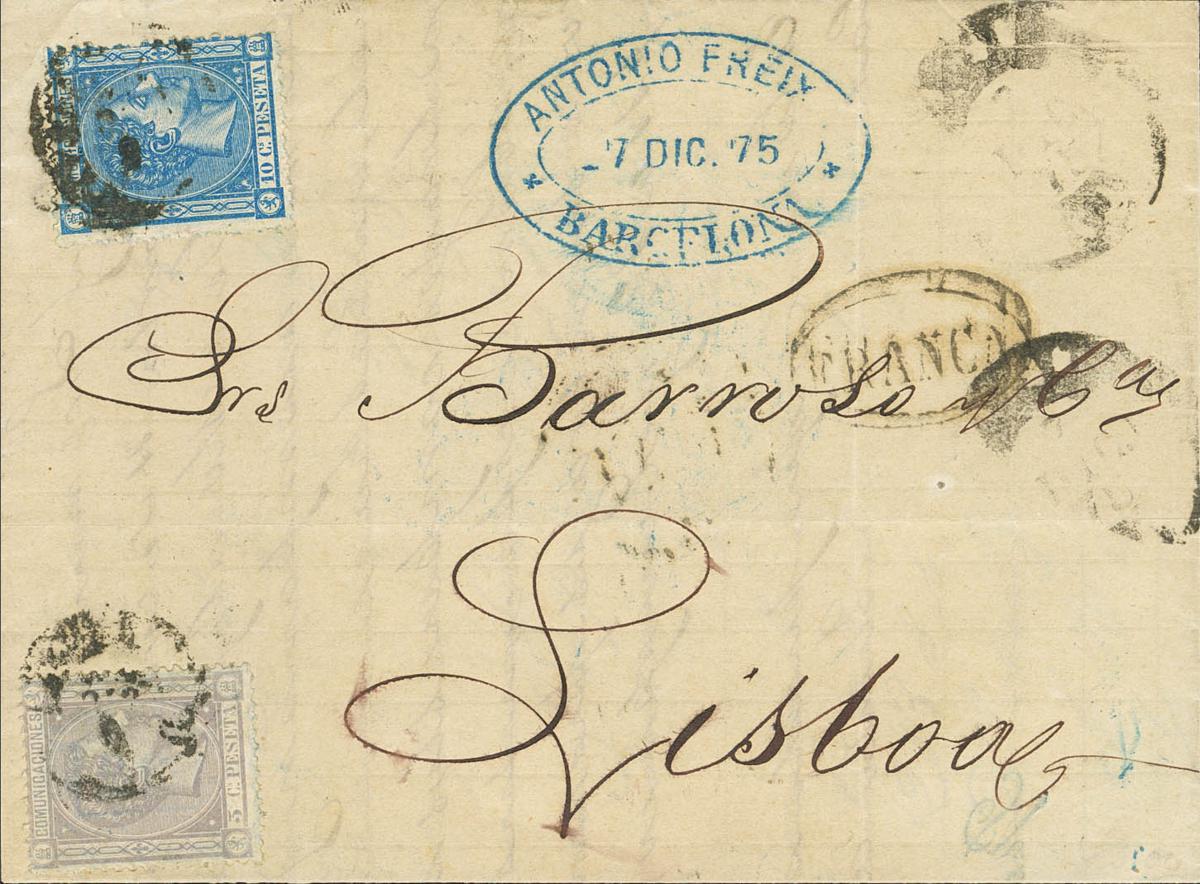 10 C. PESETA
ANTONIO FREIX
7 DIC. 75
BARCELONA
FRANCO
Srs Barroso y Ca
Lisboa
COMUNICACIONES
5 C. PESETA